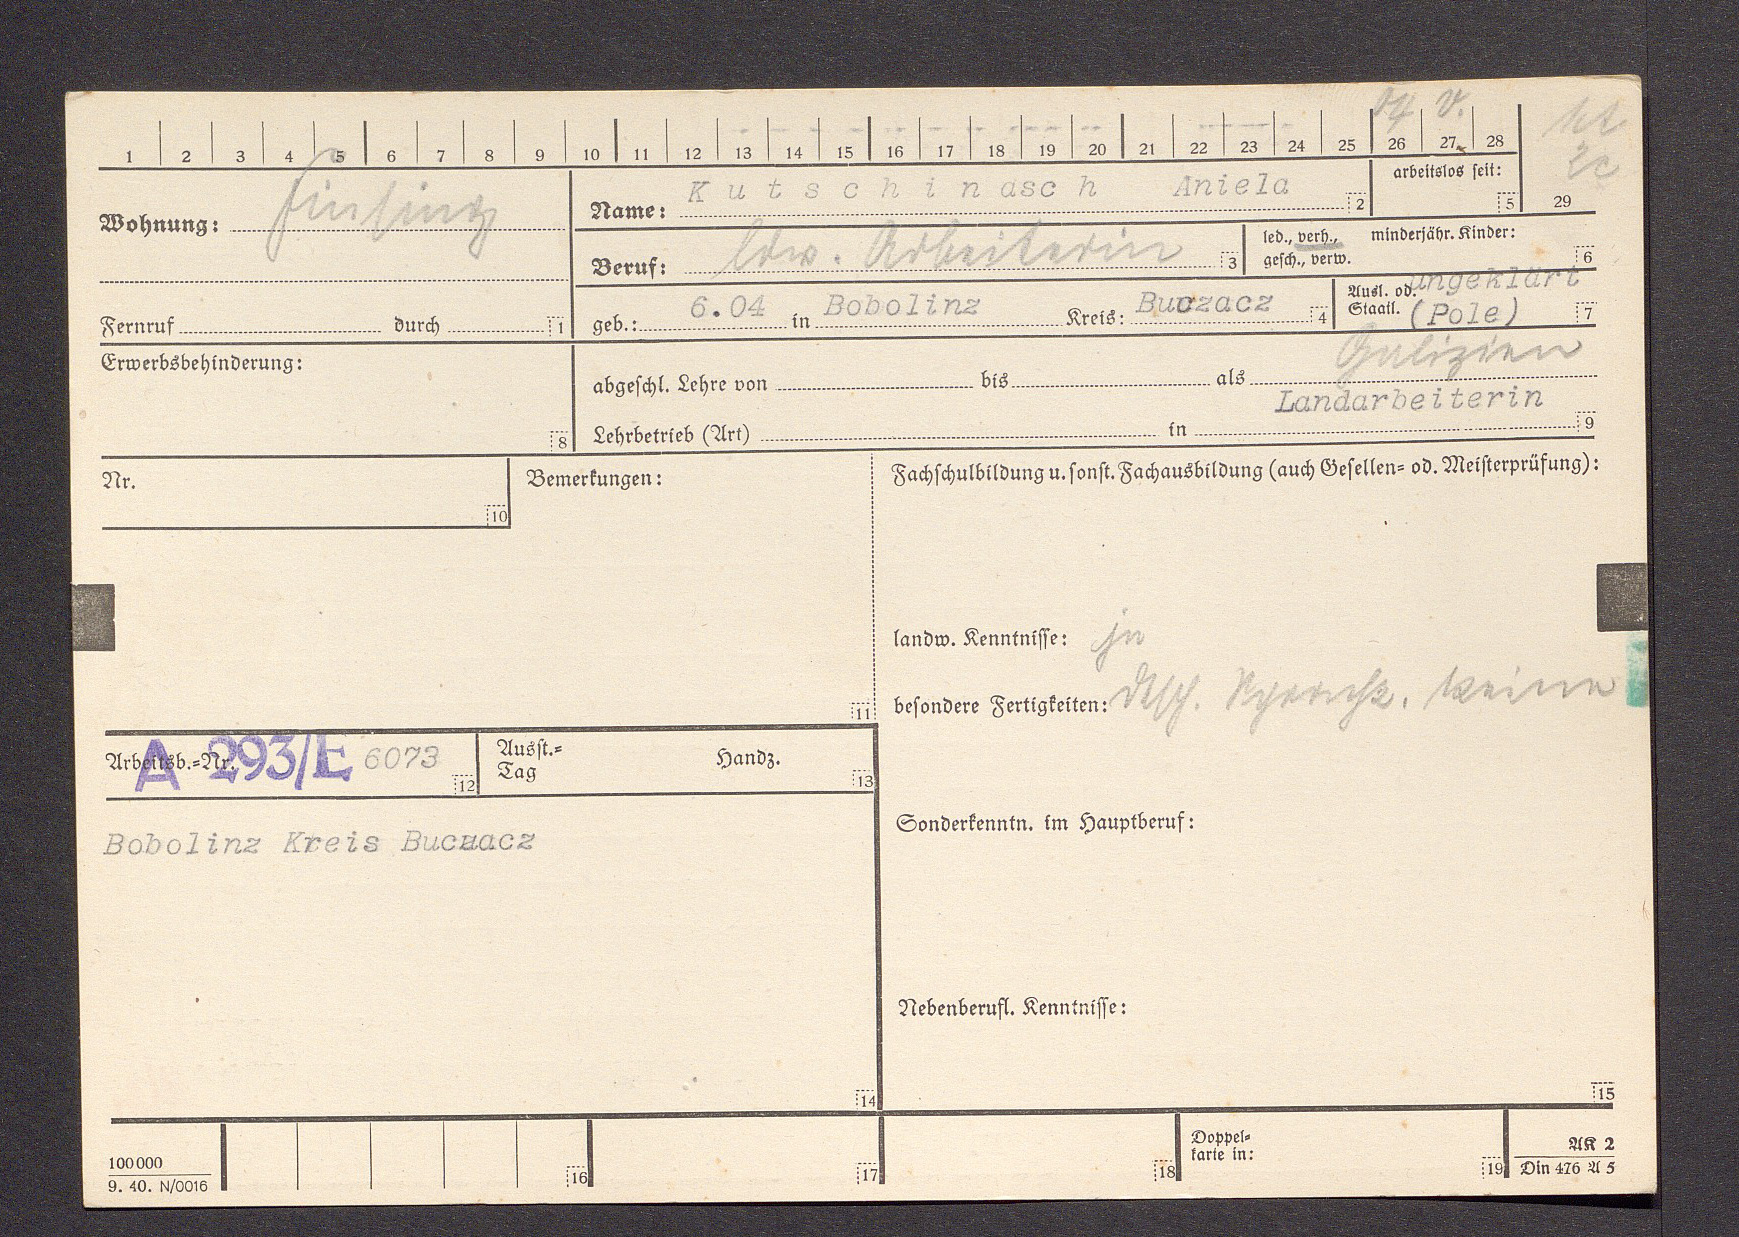 1 2 3 4 5 6 7 8 9 10 11 12 13 14 15 16 17 18 19 20 21 22 23 24 25 26 27 28 29
Wohnung: Finsing
Name: Kutschinasch Aniela 2
arbeitslos seit: 5
Beruf: ldw. Arbeiterin 3
led., verh., minderjähr. Kinder:
gesch., verw. 6
Fernruf durch 1
geb.: 6.04 in Bobolinz Kreis: Buczacz 4
Ausl. od. ungeklärt
Staatl. (Pole) 7
Galizien
Erwerbsbehinderung: 8
abgeschl. Lehre von bis als
Landarbeiterin
Lehrbetrieb (Art) in 9
Nr. 10
Bemerkungen: 11
Fachschulbildung u. sonst. Fachausbildung (auch Gesellen= od. Meisterprüfung):
landw. Kenntnisse: ja
besondere Fertigkeiten: dtsch. Sprache. keine
Arbeitsb.=Nr. A 293/E 6073 12
Ausst.=
Tag Handz. 13
Bobolinz Kreis Buczacz
Sonderkenntn. im Hauptberuf:
Nebenberufl. Kenntnisse:
14
15
100000
9. 40. N/0016
16 17 18
Doppel=
karte in: 19
AK 2
Din 476 A 5